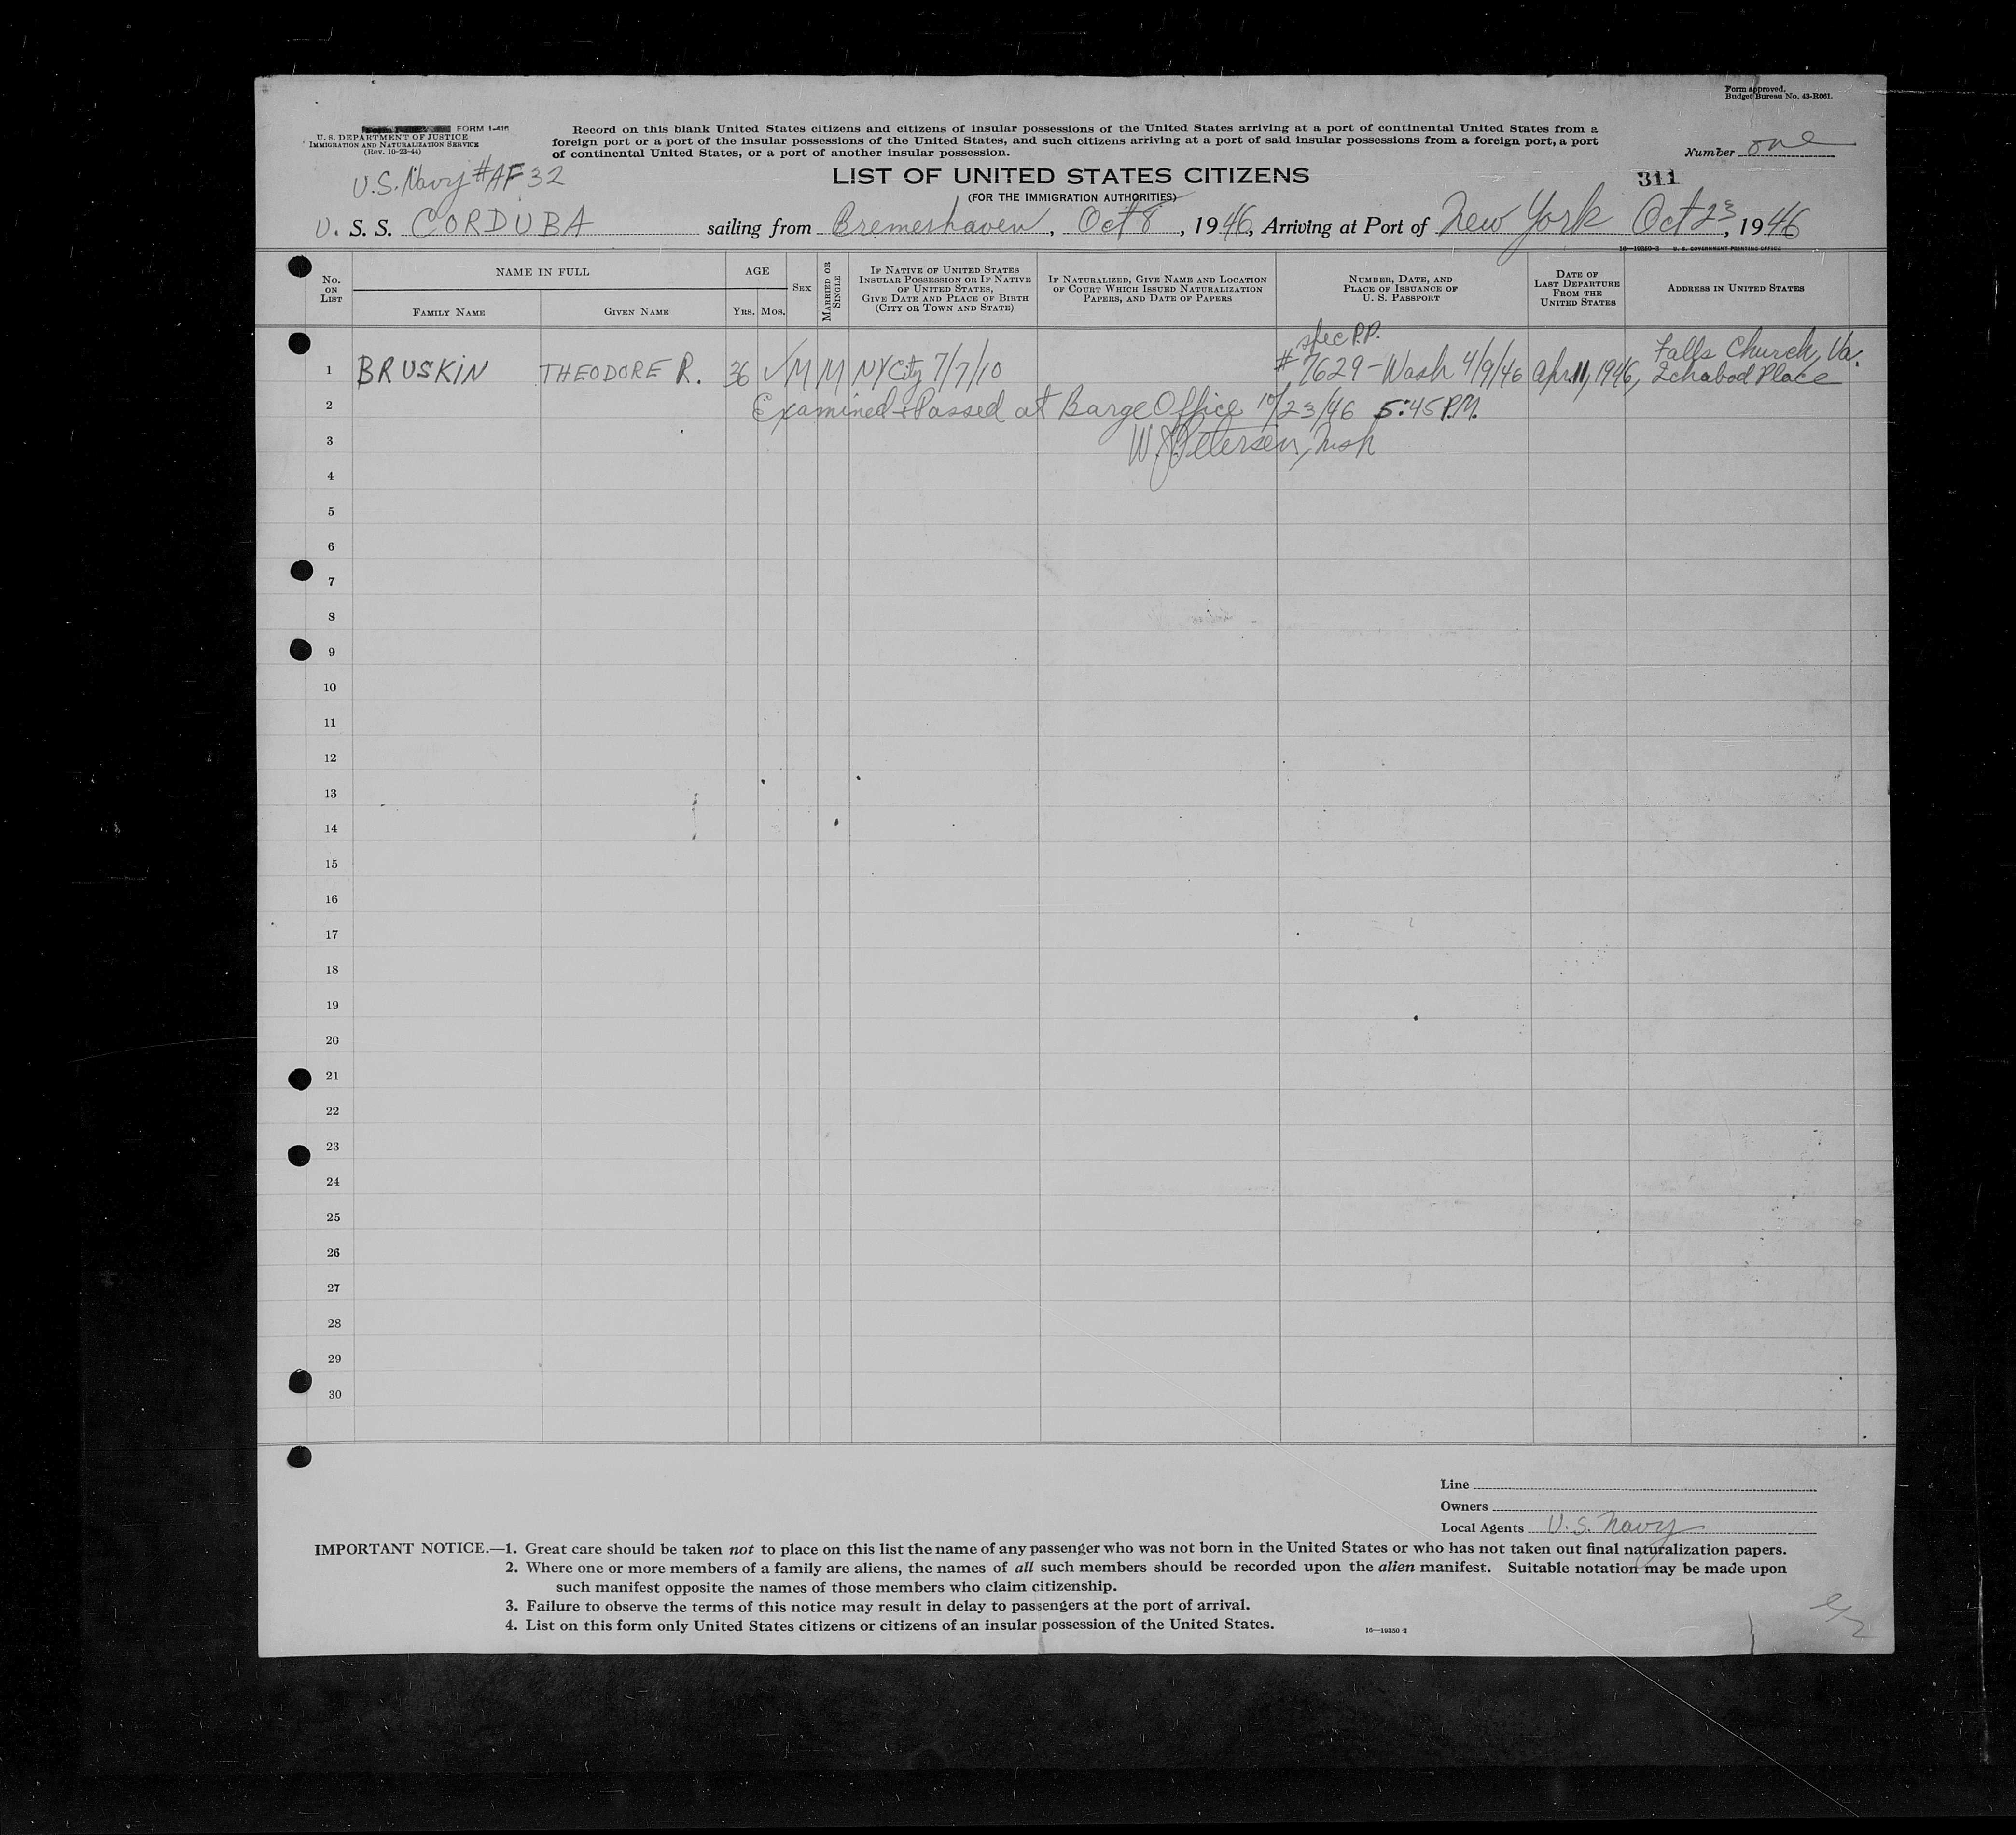 Form approved.
Budget Bureau No. 43-R061.
FORM I-416
U. S. DEPARTMENT OF JUSTICE
IMMIGRATION AND NATURALIZATION SERVICE
(Rev. 10-23-44)
Record on this blank United States citizens and citizens of insular possessions of the United States arriving at a port of continental United States from a
foreign port or a port of the insular possessions of the United States, and such citizens arriving at a port of said insular possessions from a foreign port, a port
of continental United States, or a port of another insular possession.
Number one
U.S. Navy #AF 32
LIST OF UNITED STATES CITIZENS
311
(FOR THE IMMIGRATION AUTHORITIES)
U. S. S. CORDUBA sailing from Bremerhaven, Oct 8, 1946, Arriving at Port of New York Oct 23, 1946
16—19350-2 U. S. GOVERNMENT PRINTING OFFICE
No. ON LIST
NAME IN FULL
FAMILY NAME
GIVEN NAME
AGE
YRS. MOS.
SEX
MARRIED OR SINGLE
IF NATIVE OF UNITED STATES INSULAR POSSESSION OR IF NATIVE OF UNITED STATES, GIVE DATE AND PLACE OF BIRTH (CITY OR TOWN AND STATE)
IF NATURALIZED, GIVE NAME AND LOCATION OF COURT WHICH ISSUED NATURALIZATION PAPERS, AND DATE OF PAPERS
NUMBER, DATE, AND PLACE OF ISSUANCE OF U. S. PASSPORT
DATE OF LAST DEPARTURE FROM THE UNITED STATES
ADDRESS IN UNITED STATES
spec P.P. Falls Church, Va.
1 BRUSKIN THEODORE R. 36 ✓ M M NY City 7/7/10 #7629 - Wash 4/9/46 Apr. 11, 1946, Ichabod Place
2 Examined & Passed at Barge Office 10/23/46 5:45 P.M.
3 W. J. Petersen,
4
5
6
7
8
9
10
11
12
13
14
15
16
17
18
19
20
21
22
23
24
25
26
27
28
29
30
Line
Owners
Local Agents U.S. Navy
IMPORTANT NOTICE.—1. Great care should be taken not to place on this list the name of any passenger who was not born in the United States or who has not taken out final naturalization papers.
2. Where one or more members of a family are aliens, the names of all such members should be recorded upon the alien manifest. Suitable notation may be made upon
such manifest opposite the names of those members who claim citizenship.
3. Failure to observe the terms of this notice may result in delay to passengers at the port of arrival.
4. List on this form only United States citizens or citizens of an insular possession of the United States.
16—19350-2